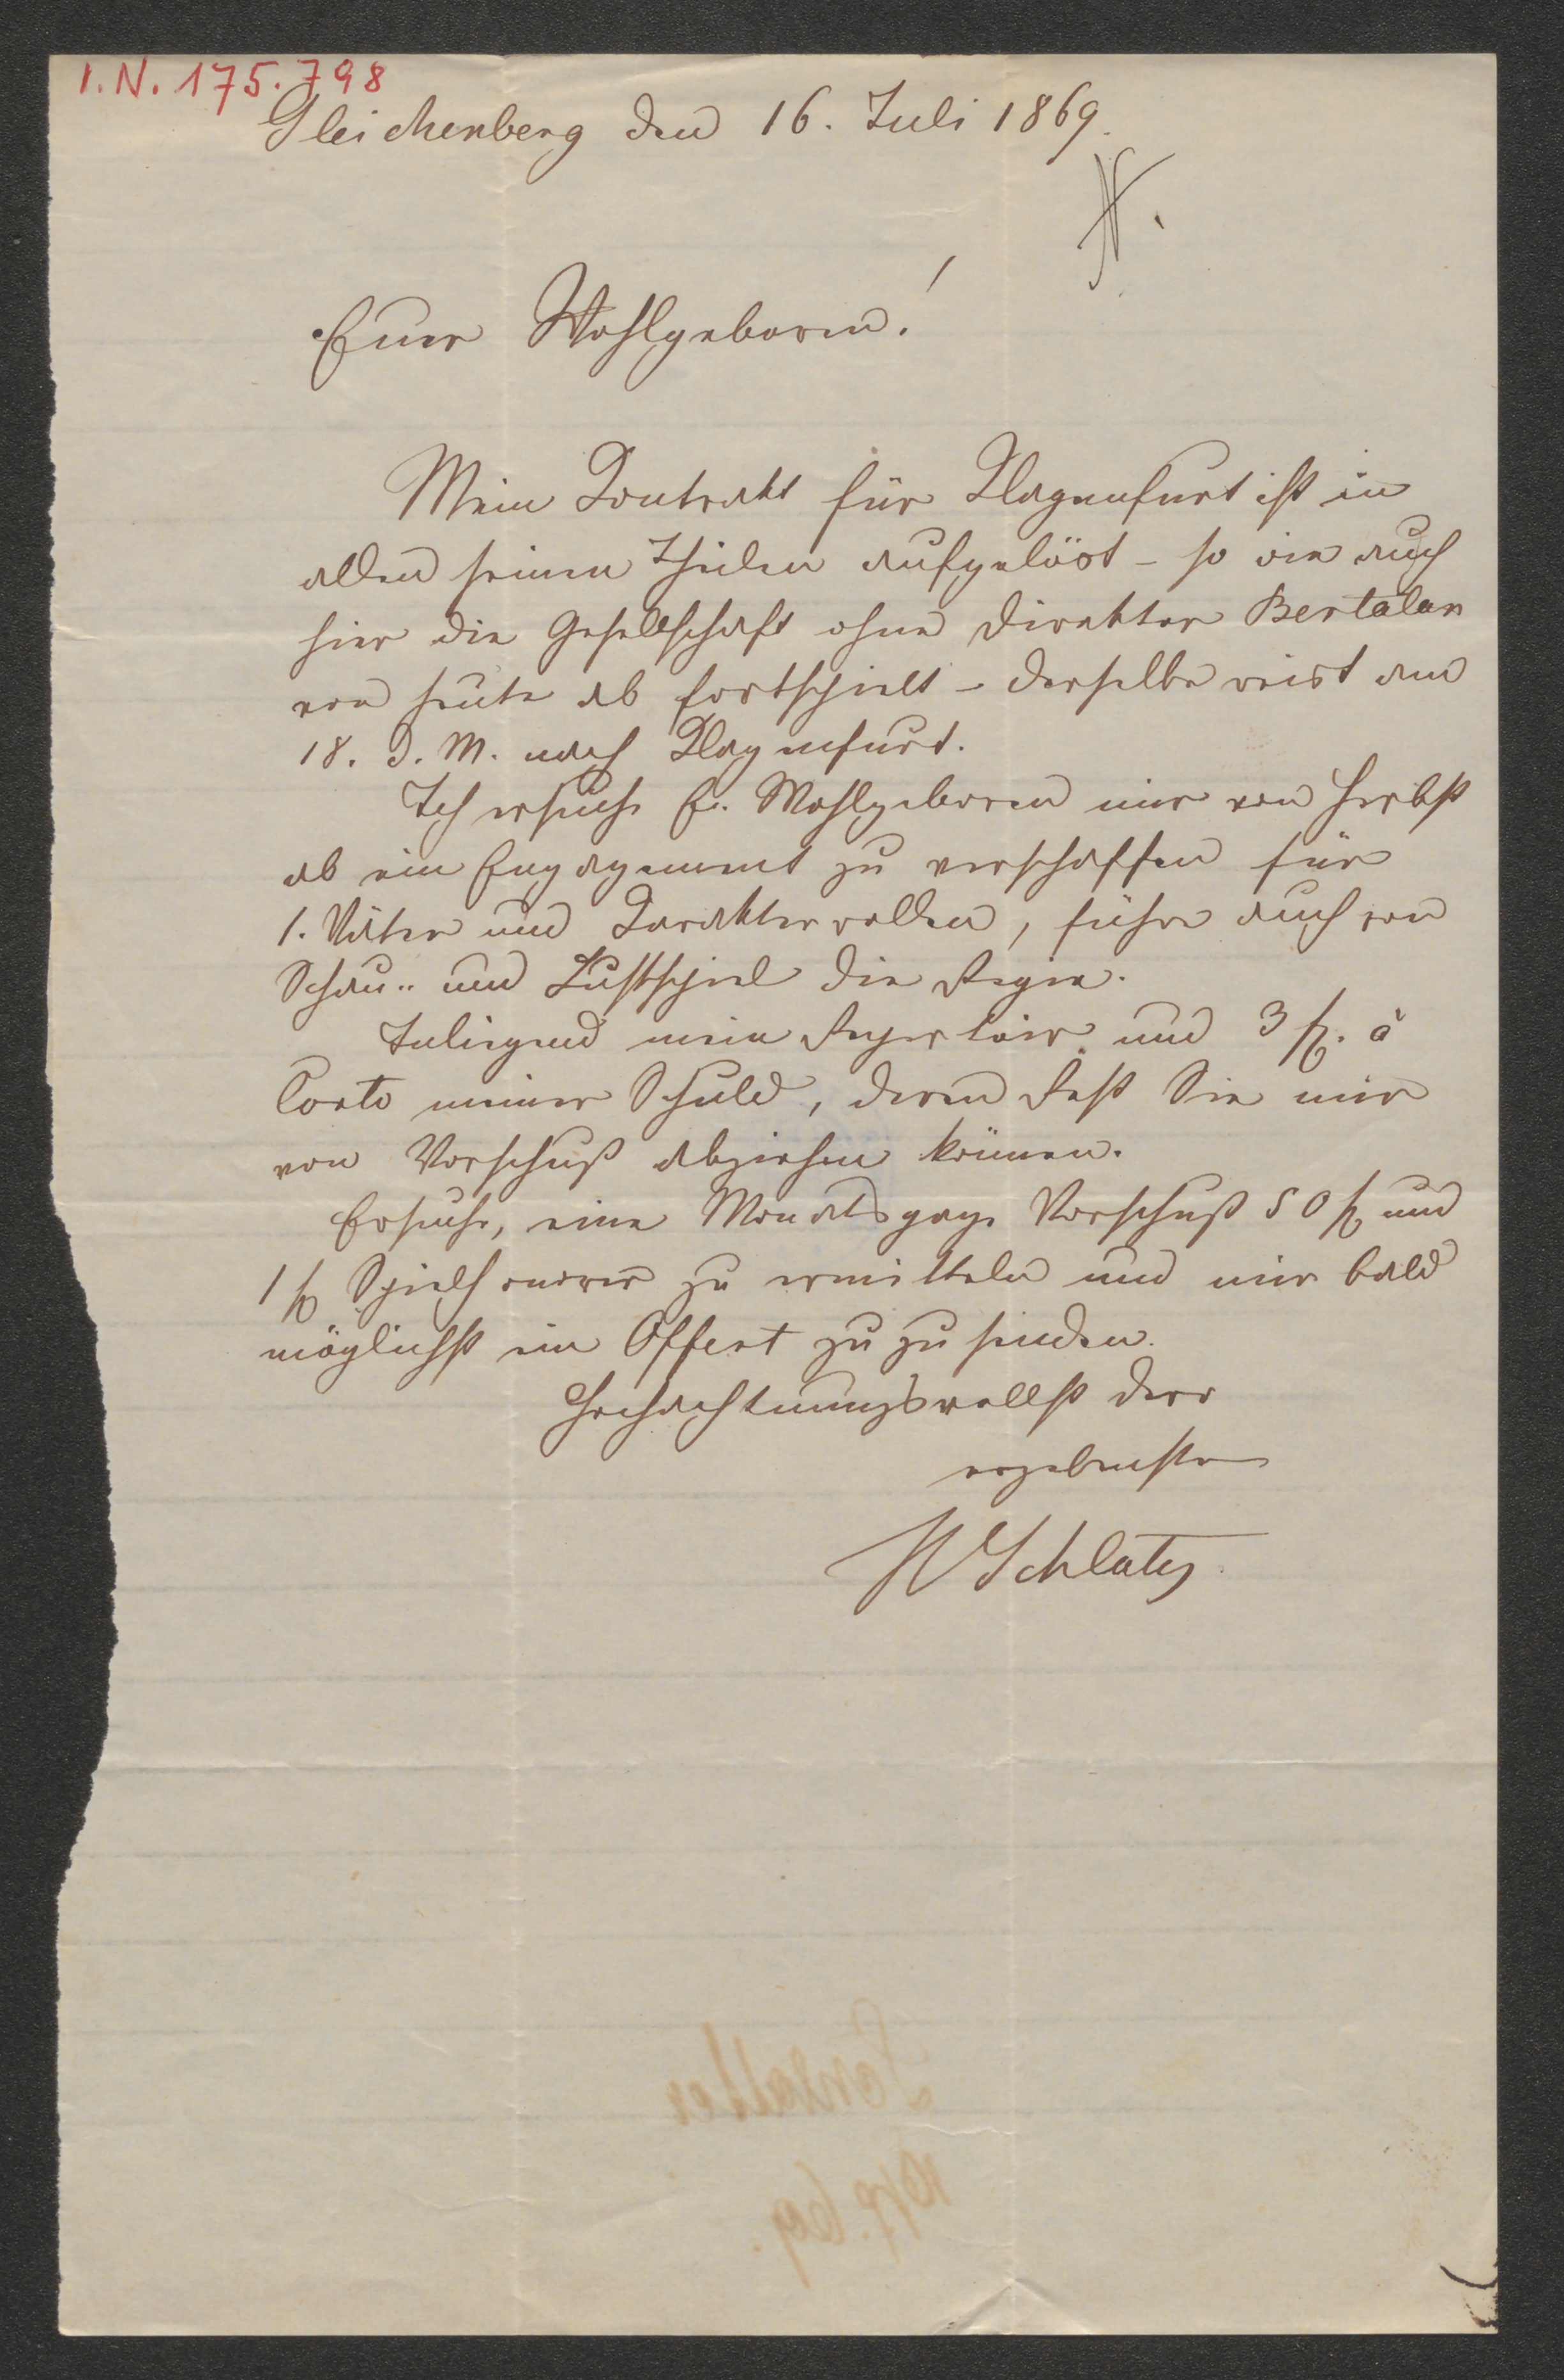 I.N. 175.798
Gleichenberg den 16. Juli 1869.
N.
Euer Wohlgeboren!
Mein Contrakt für Klagenfurt ist in
allen seinen Theilen aufgelöst – so wie auch
hier die Gesellschaft ohne Direktor Bertalan
von heute ab fortspielt – derselbe reist am
18. d. M. nach Klagenfurt.
Ich ersuche E. Wohlgeboren mir von Herbst
ab ein Engagement zu verschaffen für
1. Väter und Karakterrollen, führe auch von
Schau- und Lustspiel die Regie.
Inliegend mein Repertoir und 3 fl. à
Conto meiner Schuld, deren Rest Sie mir
von Vorschuß abziehen können.
Ersuche, eine Monatsgage Vorschuß 50 fl und
1 fl Spielhonorar zu ermitteln und mir bald
möglichst ein Offert zu zu senden.
Hochachtungsvollst der
ergebenste
W Schlatz